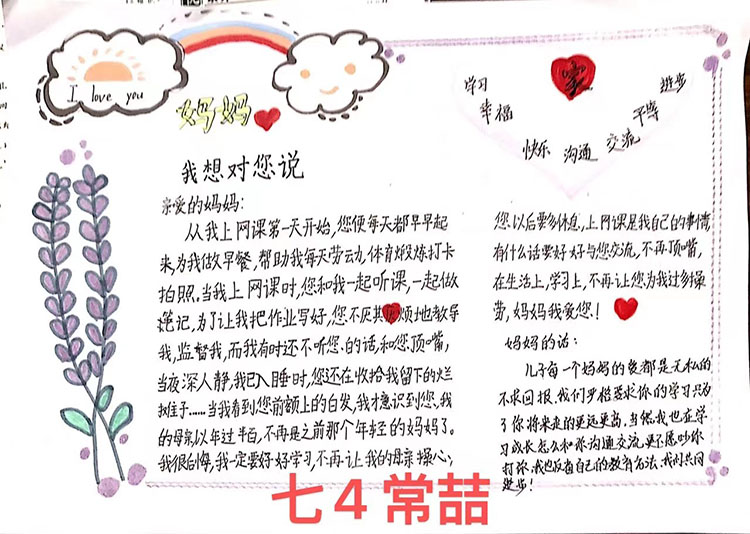 I love you
妈妈
学习
幸福
快乐
沟通
交流
平等
进步
我想对您说
亲爱的妈妈:
从我上网课第一天开始,您便每天都早早起
来,为我做早餐,帮助我每天劳动,体育煅炼打卡
拍照。当我上网课时,您和我一起听课,一起做
笔记,为了让我把作业写好,您不厌其烦地教导
我,监督我,而我有时还不听您的话,和您顶嘴,
当夜深人静,我已入睡时,您还在收拾我留下的烂
摊子……当我看到您前额上的白发,我才意识到您,我
的母亲以年过半百,不再是之前那个年轻的妈妈了。
我很后悔,我一定要好好学习,不再让我的母亲操心;
您以后要多休息,上网课是我自己的事情,
有什么话要好好与您交流,不再顶嘴,
在生活上,学习上,不再让您为我过多操
劳,妈妈我爱您!
妈妈的话:
儿子每一个妈妈的爱都是无私的
不求回报,我们严格要求你的学习只为
了你将来走的更远更高,当然我也在学
习成长怎么和你沟通交流,更不愿吵你
打你,我也反省自己的教育方法,我们共同
进步!
七4常喆